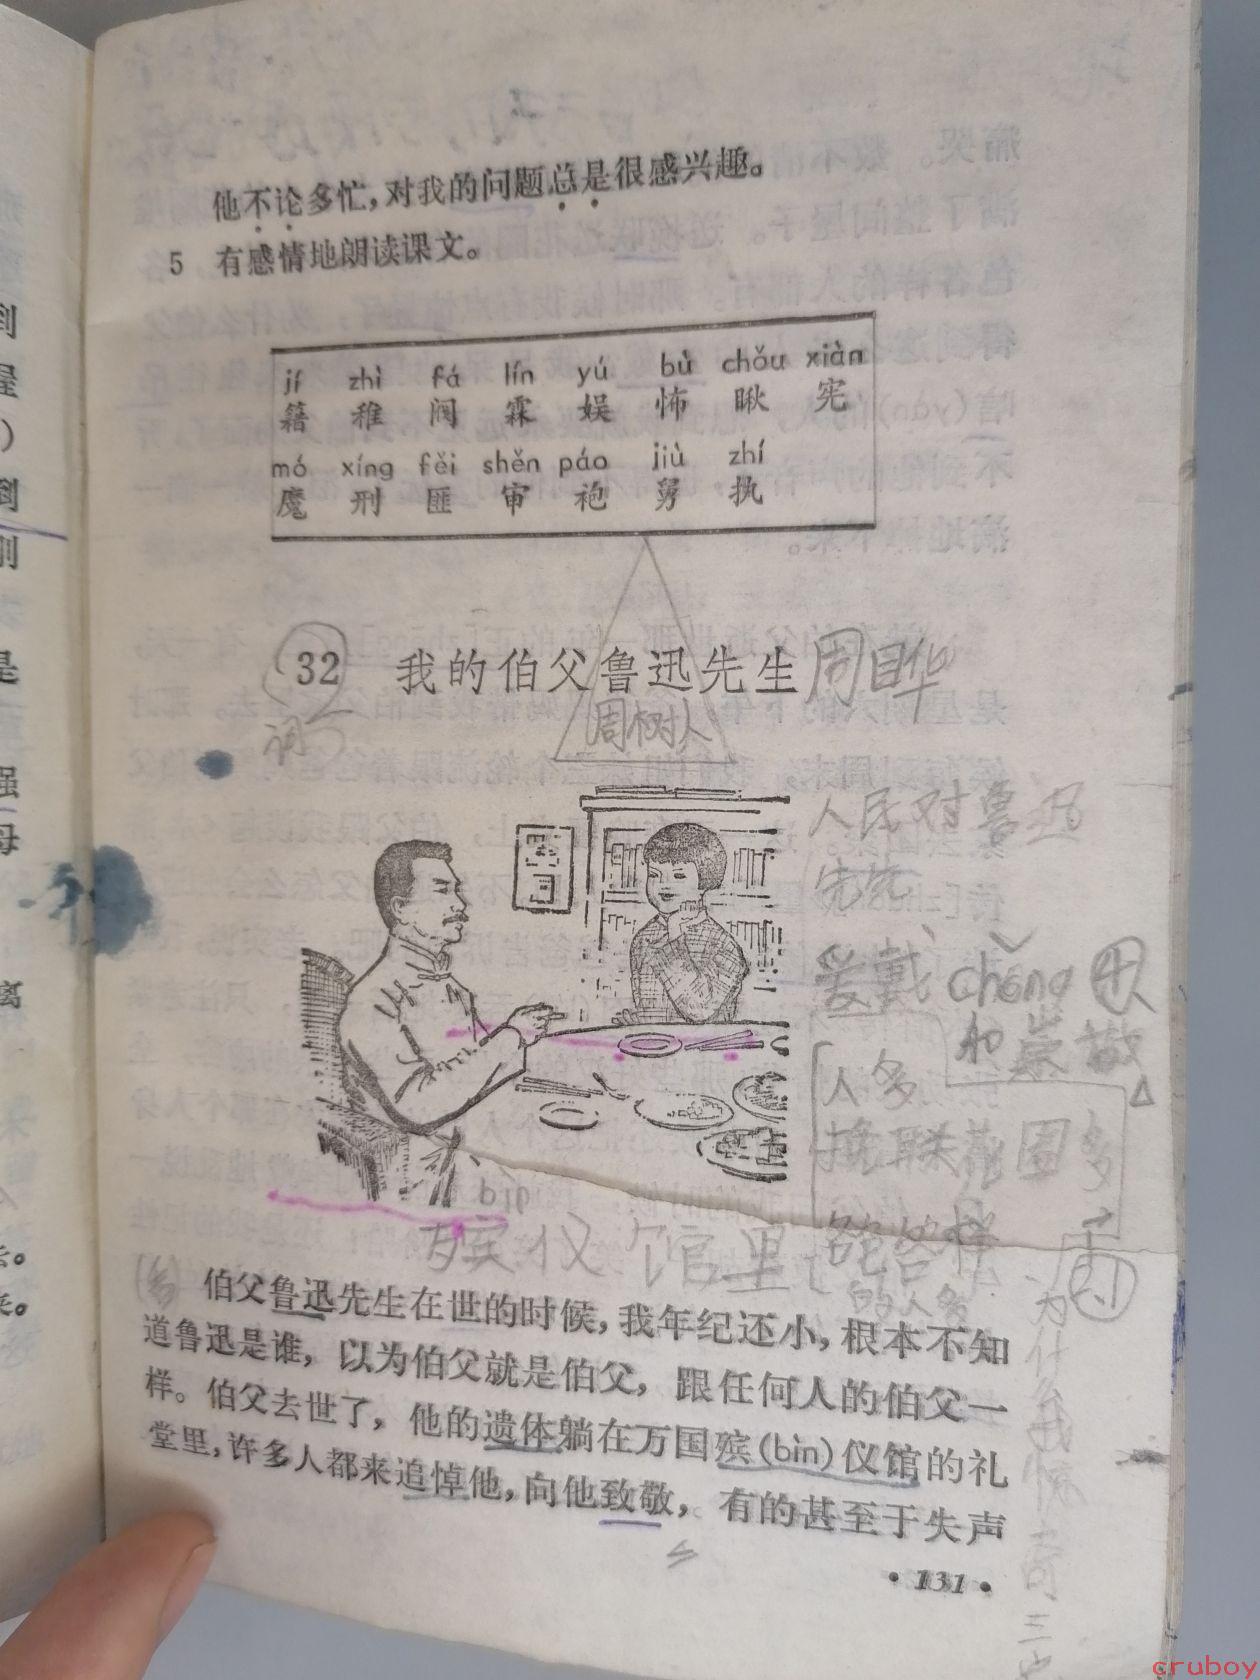 他不论多忙，对我的问题总是很感兴趣。
5 有感情地朗读课文。
jí zhì fá lín yú bù chǒu xiàn
籍 稚 阀 霖 娱 怖 瞅 宪
mó xíng fěi shěn páo jiù zhí
魔 刑 匪 审 袍 舅 执
32 我的伯父鲁迅先生 周
周树人
词
人民对鲁迅
爱戴 chóng
和崇敬
人多
挽联花圈多
殡仪馆里 各色各样
的人多
为什么我惊奇
伯父鲁迅先生在世的时候，我年纪还小，根本不知
道鲁迅是谁，以为伯父就是伯父，跟任何人的伯父一
样。伯父去世了，他的遗体躺在万国殡(bìn)仪馆的礼
堂里，许多人都来追悼他，向他致敬，有的甚至于失声
·131·
到
是
强
母
离
cruboy